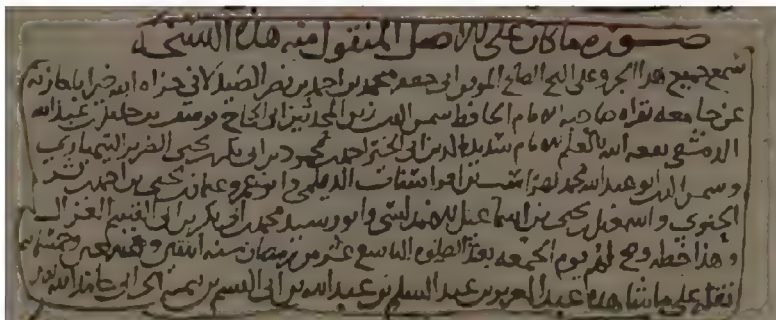 صوره ما كان على الاصل المنقول منه هذه النسخة
سمع جميع هذا الجزو على الشيخ الصالح ابى جعفر محمد بن احمد بن نصر الصيدلانى جزاه الله خيرا باجازته
عن جامعه بقراه صاحبه الامام الحافظ شمس الدين زين المحدثين ابى الحجاج يوسف بن خليل بن عبد الله
الدمشقى نفعه الله بالعلم الامام سديد الدين محمود بن ابى بكر بن يحيى الضرير
وشمس الدين ابو عبد الله محمد الديلمى وابو عمرو عثمان بن يحيى بن احمد
واسمعيل بن يحيى بن اسماعيل الاندلسى وابو رشيد محمد بن ابى بكر بن ابى القسم الغزال
وهذا خطه وصح لهم يوم الجمعه بعد الصلوه التاسع عشر من رمضان سنه اثنتين وتسعين وخمسمائه
نقله على ما شاهده عبد العزيز بن عبد السلم بن عبد الله بن ابى القسم بن تيميه الحرانى حامدا لله